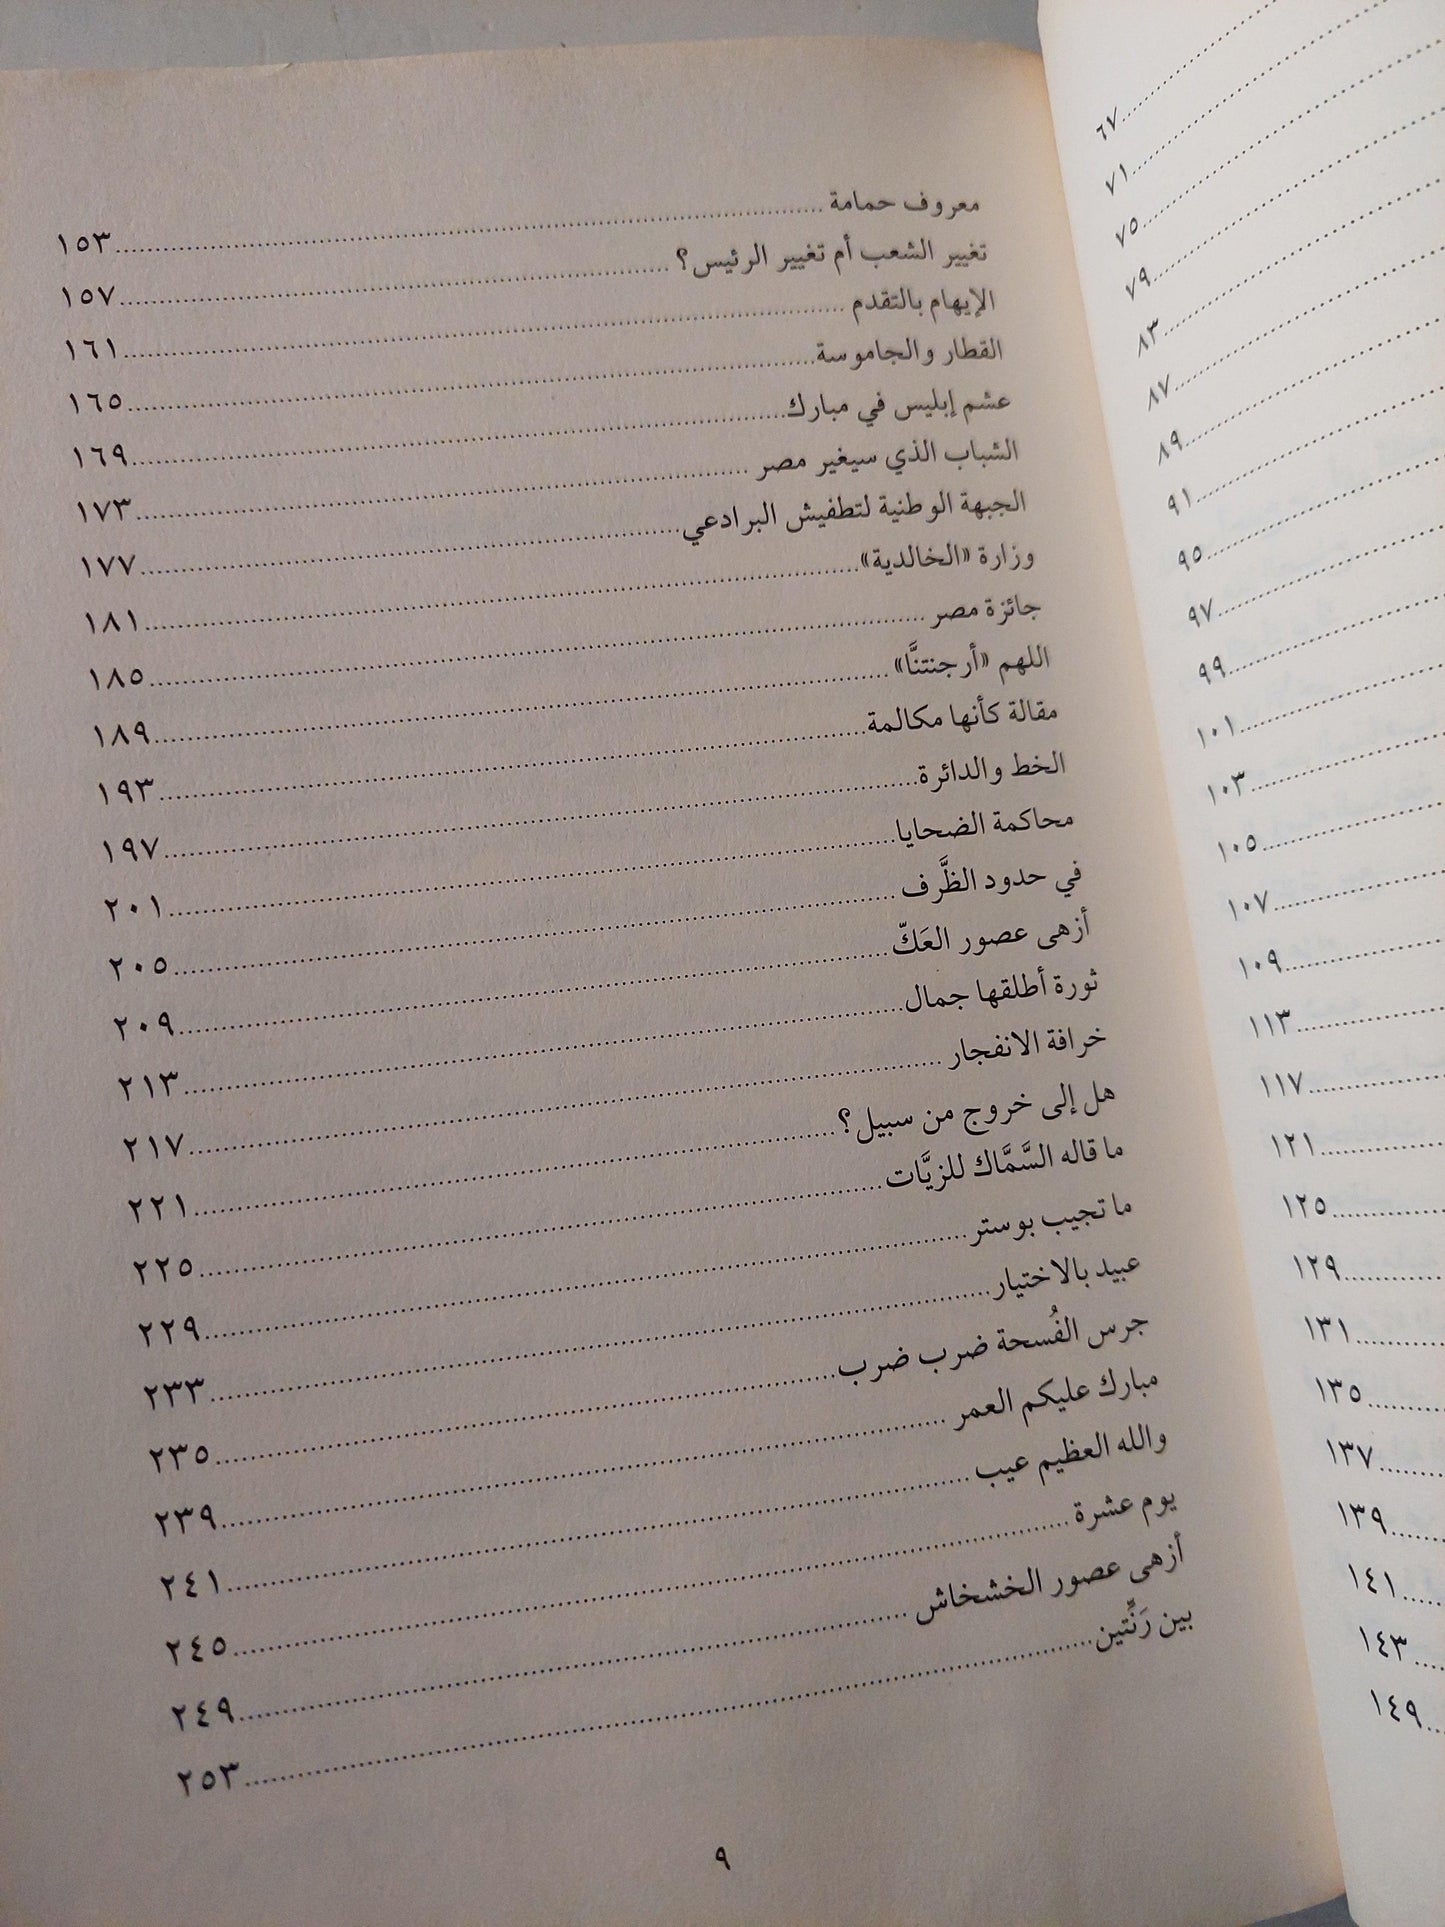 ٦٧
٧١
٧٥
٧٩
٨٣
٨٧
٨٩
٩١
٩٥
٩٧
٩٩
١٠١
١٠٣
١٠٥
١٠٧
١٠٩
١١٣
١١٧
١٢١
١٢٥
١٢٩
١٣١
١٣٥
١٣٧
١٣٩
١٤١
١٤٣
١٤٩
معروف حمامة ١٥٣
تغيير الشعب أم تغيير الرئيس؟ ١٥٧
الإيهام بالتقدم ١٦١
القطار والجاموسة ١٦٥
عشم إبليس في مبارك ١٦٩
الشباب الذي سيغير مصر ١٧٣
الجبهة الوطنية لتطفيش البرادعي ١٧٧
وزارة «الخالدية» ١٨١
جائزة مصر ١٨٥
اللهم «أرجنتنَّا» ١٨٩
مقالة كأنها مكالمة ١٩٣
الخط والدائرة ١٩٧
محاكمة الضحايا ٢٠١
في حدود الظَّرف ٢٠٥
أزهى عصور العَكّ ٢٠٩
ثورة أطلقها جمال ٢١٣
خرافة الانفجار ٢١٧
هل إلى خروج من سبيل؟ ٢٢١
ما قاله السَّمَّاك للزيَّات ٢٢٥
ما تجيب بوستر ٢٢٩
عبيد بالاختيار ٢٣٣
جرس الفُسحة ضرب ضرب ٢٣٥
مبارك عليكم العمر ٢٣٩
والله العظيم عيب ٢٤١
يوم عشرة ٢٤٥
أزهى عصور الخشخاش ٢٤٩
بين رَنَّتين ٢٥٣
٩